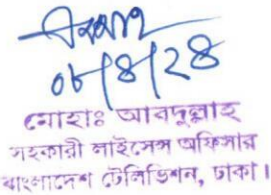 ০৮/৪/২৪
মোহাঃ আবদুল্লাহ
সহকারী লাইসেন্স অফিসার
বাংলাদেশ টেলিভিশন, ঢাকা।